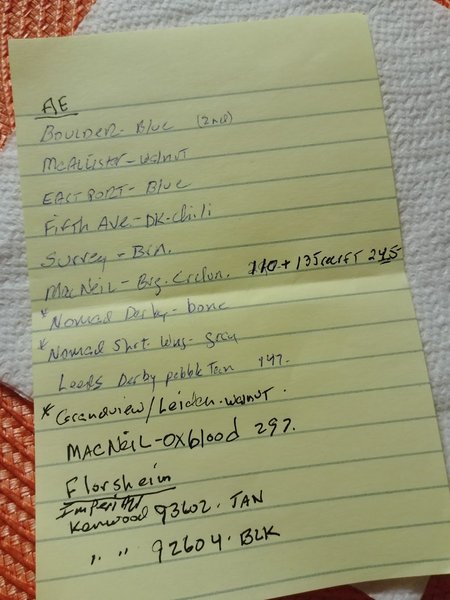 AE
BOULDER - Blue (2nd)
McAllister - walnut
EASTPORT - Blue
Fifth Ave. - DK-chili
Surrey - Brn.
MacNeil - Brg. 110 + 135 245
* Nomad Derby - bone
* Nomad Shrt Wing - gray
Leeds Derby pebble Tan 147.
* Grandview/Leiden - walnut.
MACNEIL - OXblood 297.
Florsheim
Imperial
Kenwood 93602. TAN
" " 92604. BLK